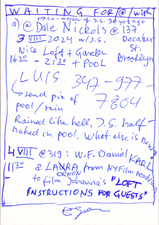 WAITING FOR/@/with
a) @ Dale Nichols @ 137
3 VIII 2024 w/J.S. Decatur St.
Nice Loft + Garden Brooklyn
16:30 - 21:30 + Pool
LUIS 347-977-
7804
→ sent pic of
pool/rain
Rained like hell, J.S. half
naked in pool. What else is new
4 VIII @ 319: W.F. Daniel KARL
11:30 @ LAURA from NY Film Academy
to film Johanna's "LOFT
INSTRUCTIONS FOR GUESTS"